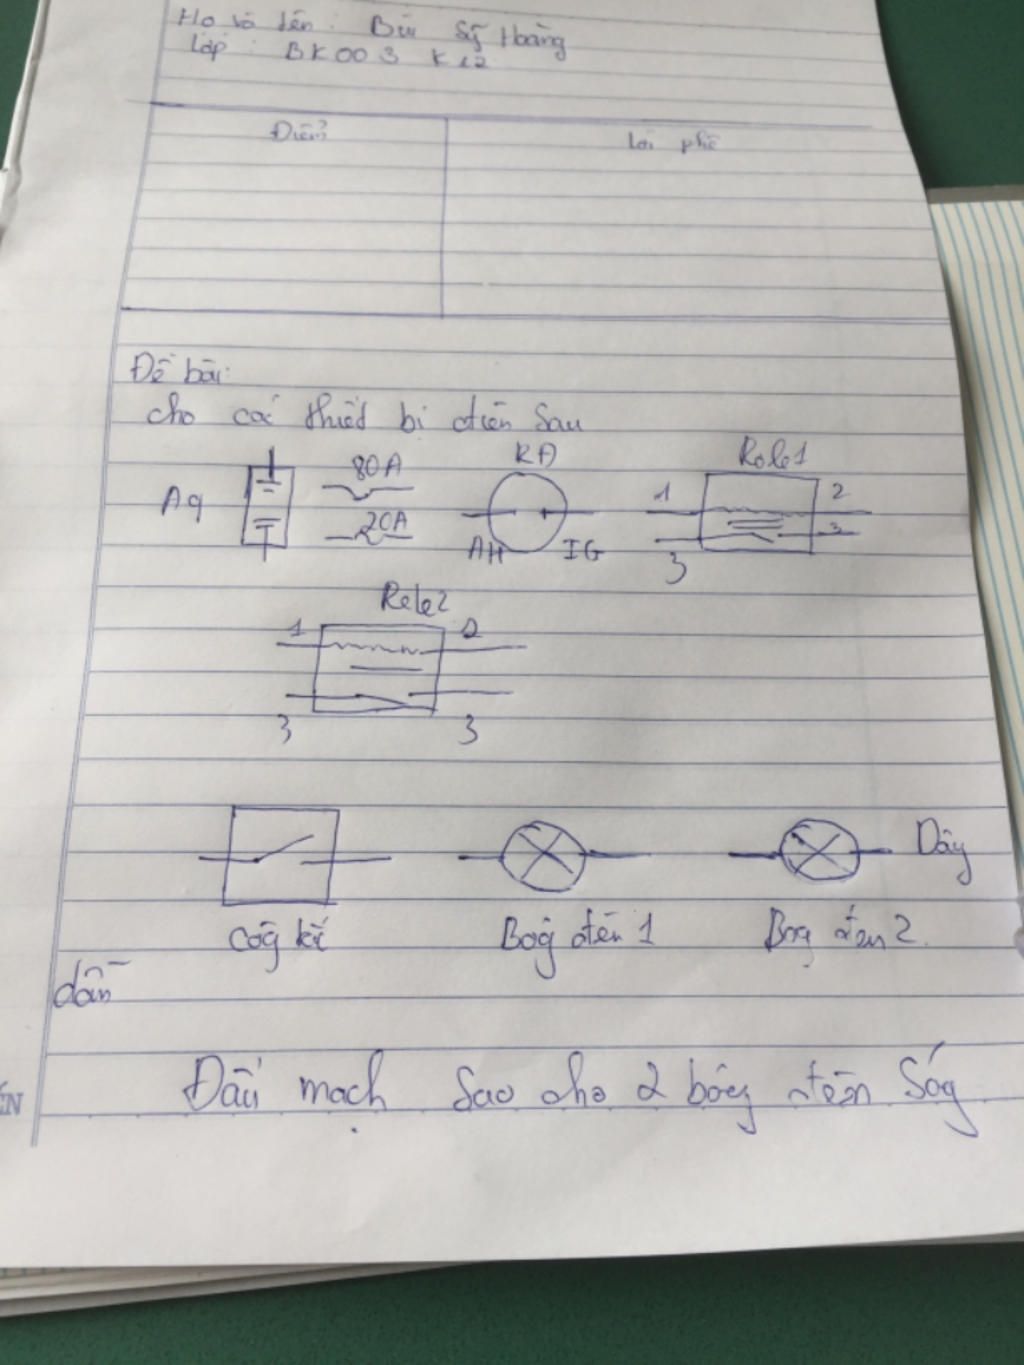 Họ và tên: Bùi Sỹ Hoàng
Lớp: BK003 K12
Điểm Lời phê
Đề bài:
cho các thiết bị điện sau
80A KĐ Role1
Aq 1 2
20A AM IG 3 3
Role2
1 2
3 3
Dây
Công tắc Bóng đèn 1 Bóng đèn 2.
dẫn
Đấu mạch sao cho 2 bóng đèn sáng